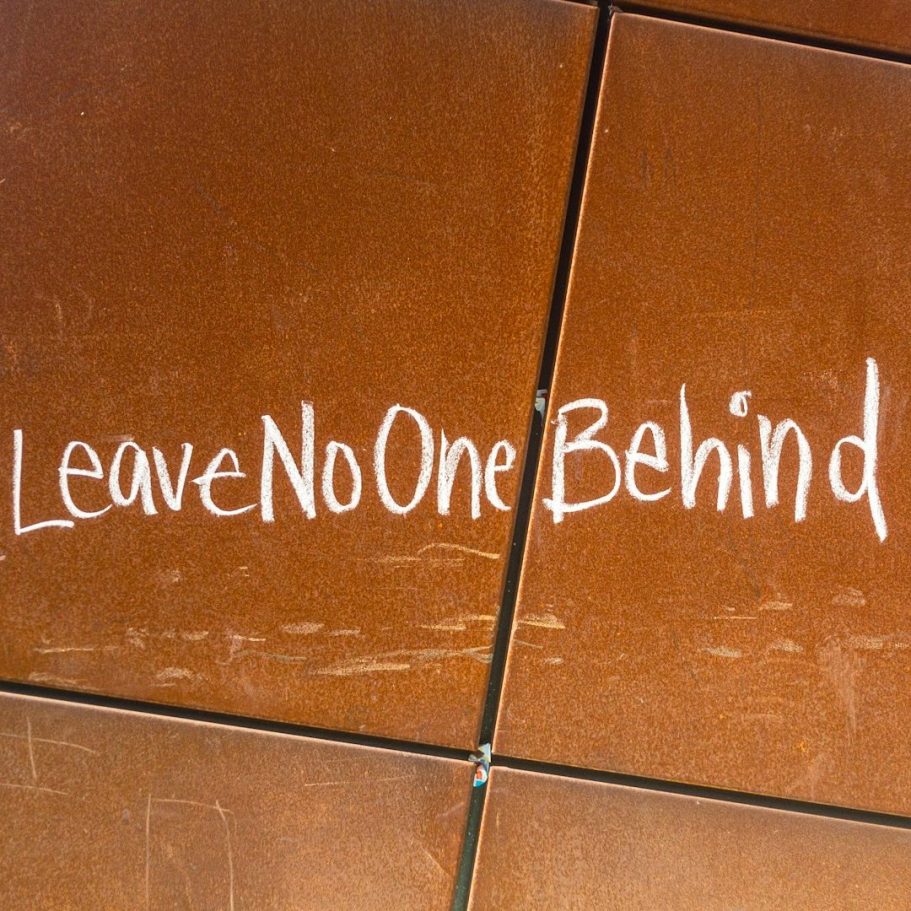 Leave No One Behind